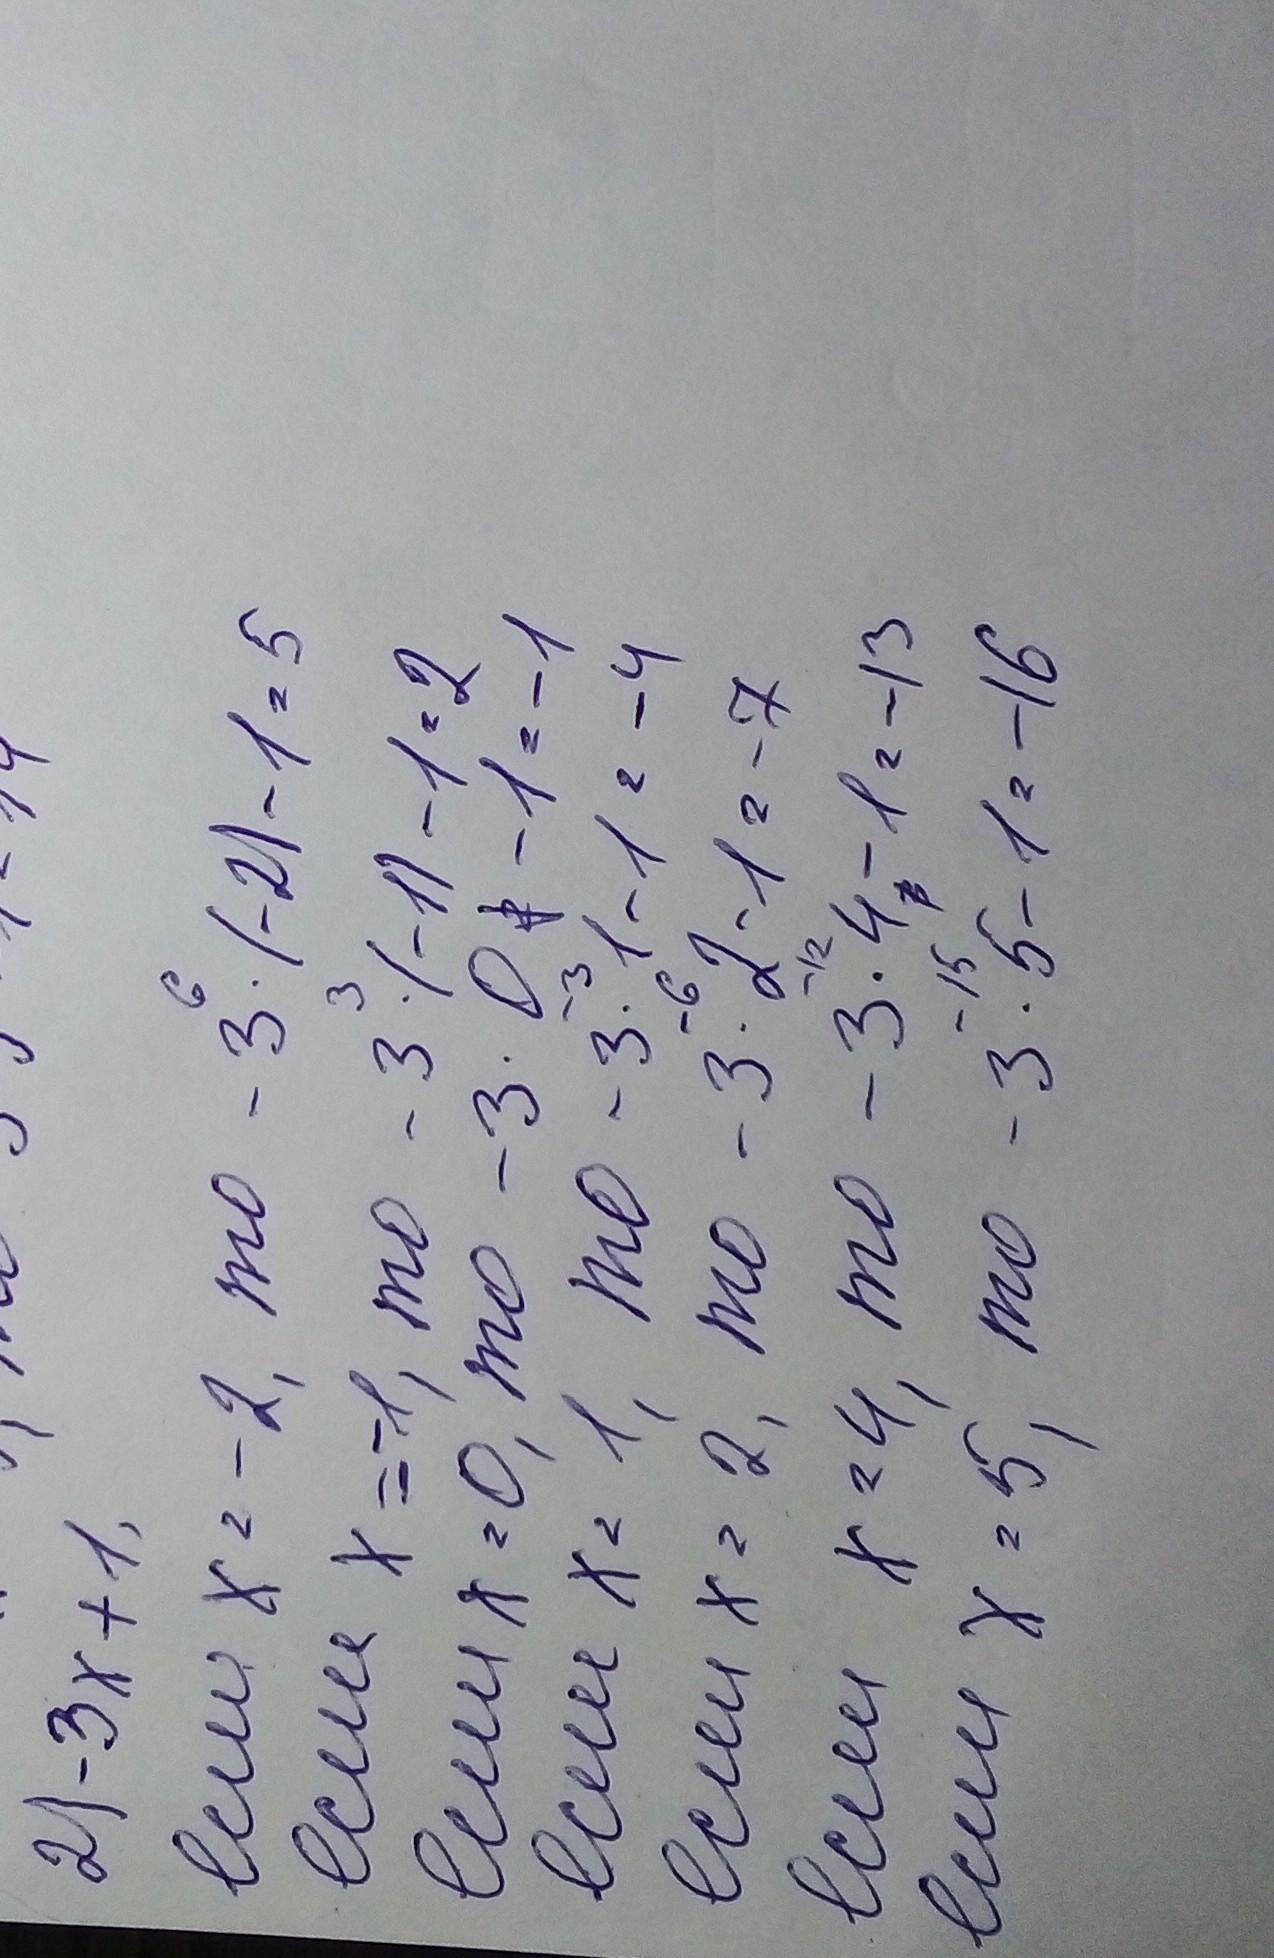 2) -3x + 1,
6
если x = -2, то -3 · (-2) - 1 = 5
3
если x = -1, то -3 · (-1) - 1 = 2
если x = 0, то -3 · 0 - 1 = -1
-3
если x = 1, то -3 · 1 - 1 = -4
-6
если x = 2, то -3 · 2 - 1 = -7
-12
если x = 4, то -3 · 4 - 1 = -13
-15
если x = 5, то -3 · 5 - 1 = -16